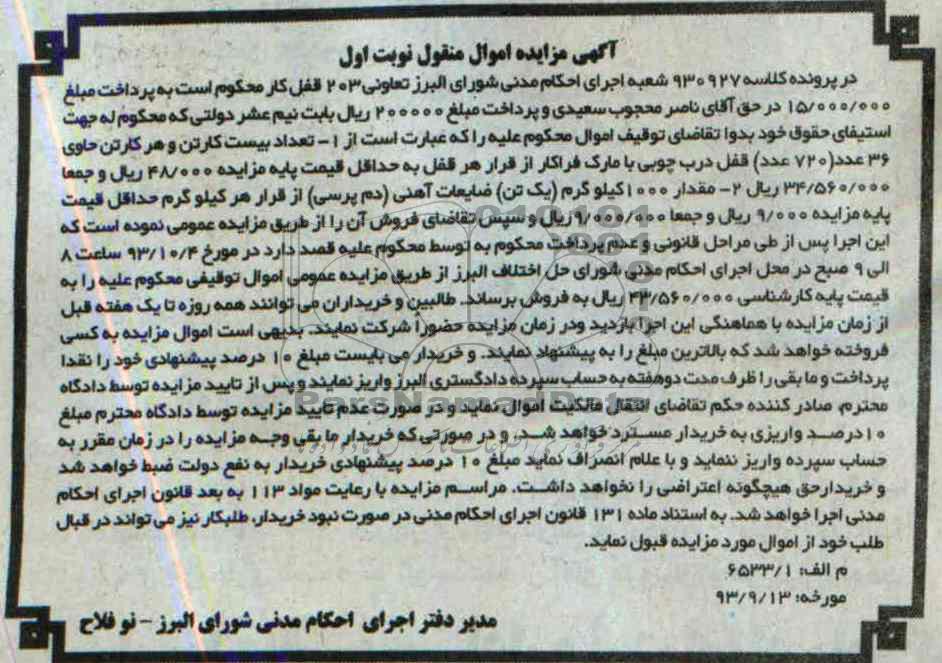 آگهی مزایده اموال منقول نوبت اول
در پرونده کلاسه ۹۳۰۹۲۷ شعبه اجرای احکام مدنی شورای البرز تعاونی ۲۰۳ قفل کار محکوم است به پرداخت مبلغ
۱۵/۰۰۰/۰۰۰ در حق آقای ناصر محجوب سعیدی و پرداخت مبلغ ۲۰۰۰۰۰ ریال بابت نیم عشر دولتی که محکوم له جهت
استیفای حقوق خود بدوا تقاضای توقیف اموال محکوم علیه را که عبارت است از ۱- تعداد بیست کارتن و هر کارتن حاوی
۳۶ عدد(۷۲۰ عدد) قفل درب چوبی با مارک فراکار از قرار هر قفل به حداقل قیمت پایه مزایده ۴۸/۰۰۰ ریال و جمعا
۳۴/۵۶۰/۰۰۰ ریال ۲- مقدار ۱۰۰۰کیلو گرم (یک تن) ضایعات آهنی (دم پرسی) از قرار هر کیلو گرم حداقل قیمت
پایه مزایده ۹/۰۰۰ ریال و جمعا ۹/۰۰۰/۰۰۰ریال و سپس تقاضای فروش آن را از طریق مزایده عمومی نموده است که
این اجرا پس از طی مراحل قانونی و عدم پرداخت محکوم به توسط محکوم علیه قصد دارد در مورخ ۹۳/۱۰/۴ ساعت ۸
الی ۹ صبح در محل اجرای احکام مدنی شورای حل اختلاف البرز از طریق مزایده عمومی اموال توقیفی محکوم علیه را به
قیمت پایه کارشناسی ۴۳/۵۶۰/۰۰۰ ریال به فروش برساند. طالبین و خریداران می توانند همه روزه تا یک هفته قبل
از زمان مزایده با هماهنگی این اجرا بازدید ودر زمان مزایده حضوراً شرکت نمایند. بدیهی است اموال مزایده به کسی
فروخته خواهد شد که بالاترین مبلغ را به پیشنهاد نمایند. و خریدار می بایست مبلغ ۱۰ درصد پیشنهادی خود را نقدا
پرداخت و ما بقی را ظرف مدت دوهفته به حساب سپرده دادگستری البرز واریز نمایند و پس از تایید مزایده توسط دادگاه
محترم، صادر کننده حکم تقاضای انتقال مالکیت اموال نماید و در صورت عدم تایید مزایده توسط دادگاه محترم مبلغ
۱۰درصد واریزی به خریدار مسترد خواهد شد. و در صورتی که خریدار ما بقی وجه مزایده را در زمان مقرر به
حساب سپرده واریز ننماید و با علام انصراف نماید مبلغ ۱۰ درصد پیشنهادی خریدار به نفع دولت ضبط خواهد شد
و خریدارحق هیچگونه اعتراضی را نخواهد داشت. مراسم مزایده با رعایت مواد ۱۱۳ به بعد قانون اجرای احکام
مدنی اجرا خواهد شد. به استناد ماده ۱۳۱ قانون اجرای احکام مدنی در صورت نبود خریدار، طلبکار نیز می تواند در قبال
طلب خود از اموال مورد مزایده قبول نماید.
م الف: ۶۵۳۳/۱
مورخه: ۹۳/۹/۱۳
مدیر دفتر اجرای احکام مدنی شورای البرز – نو فلاح
ParsNamadData